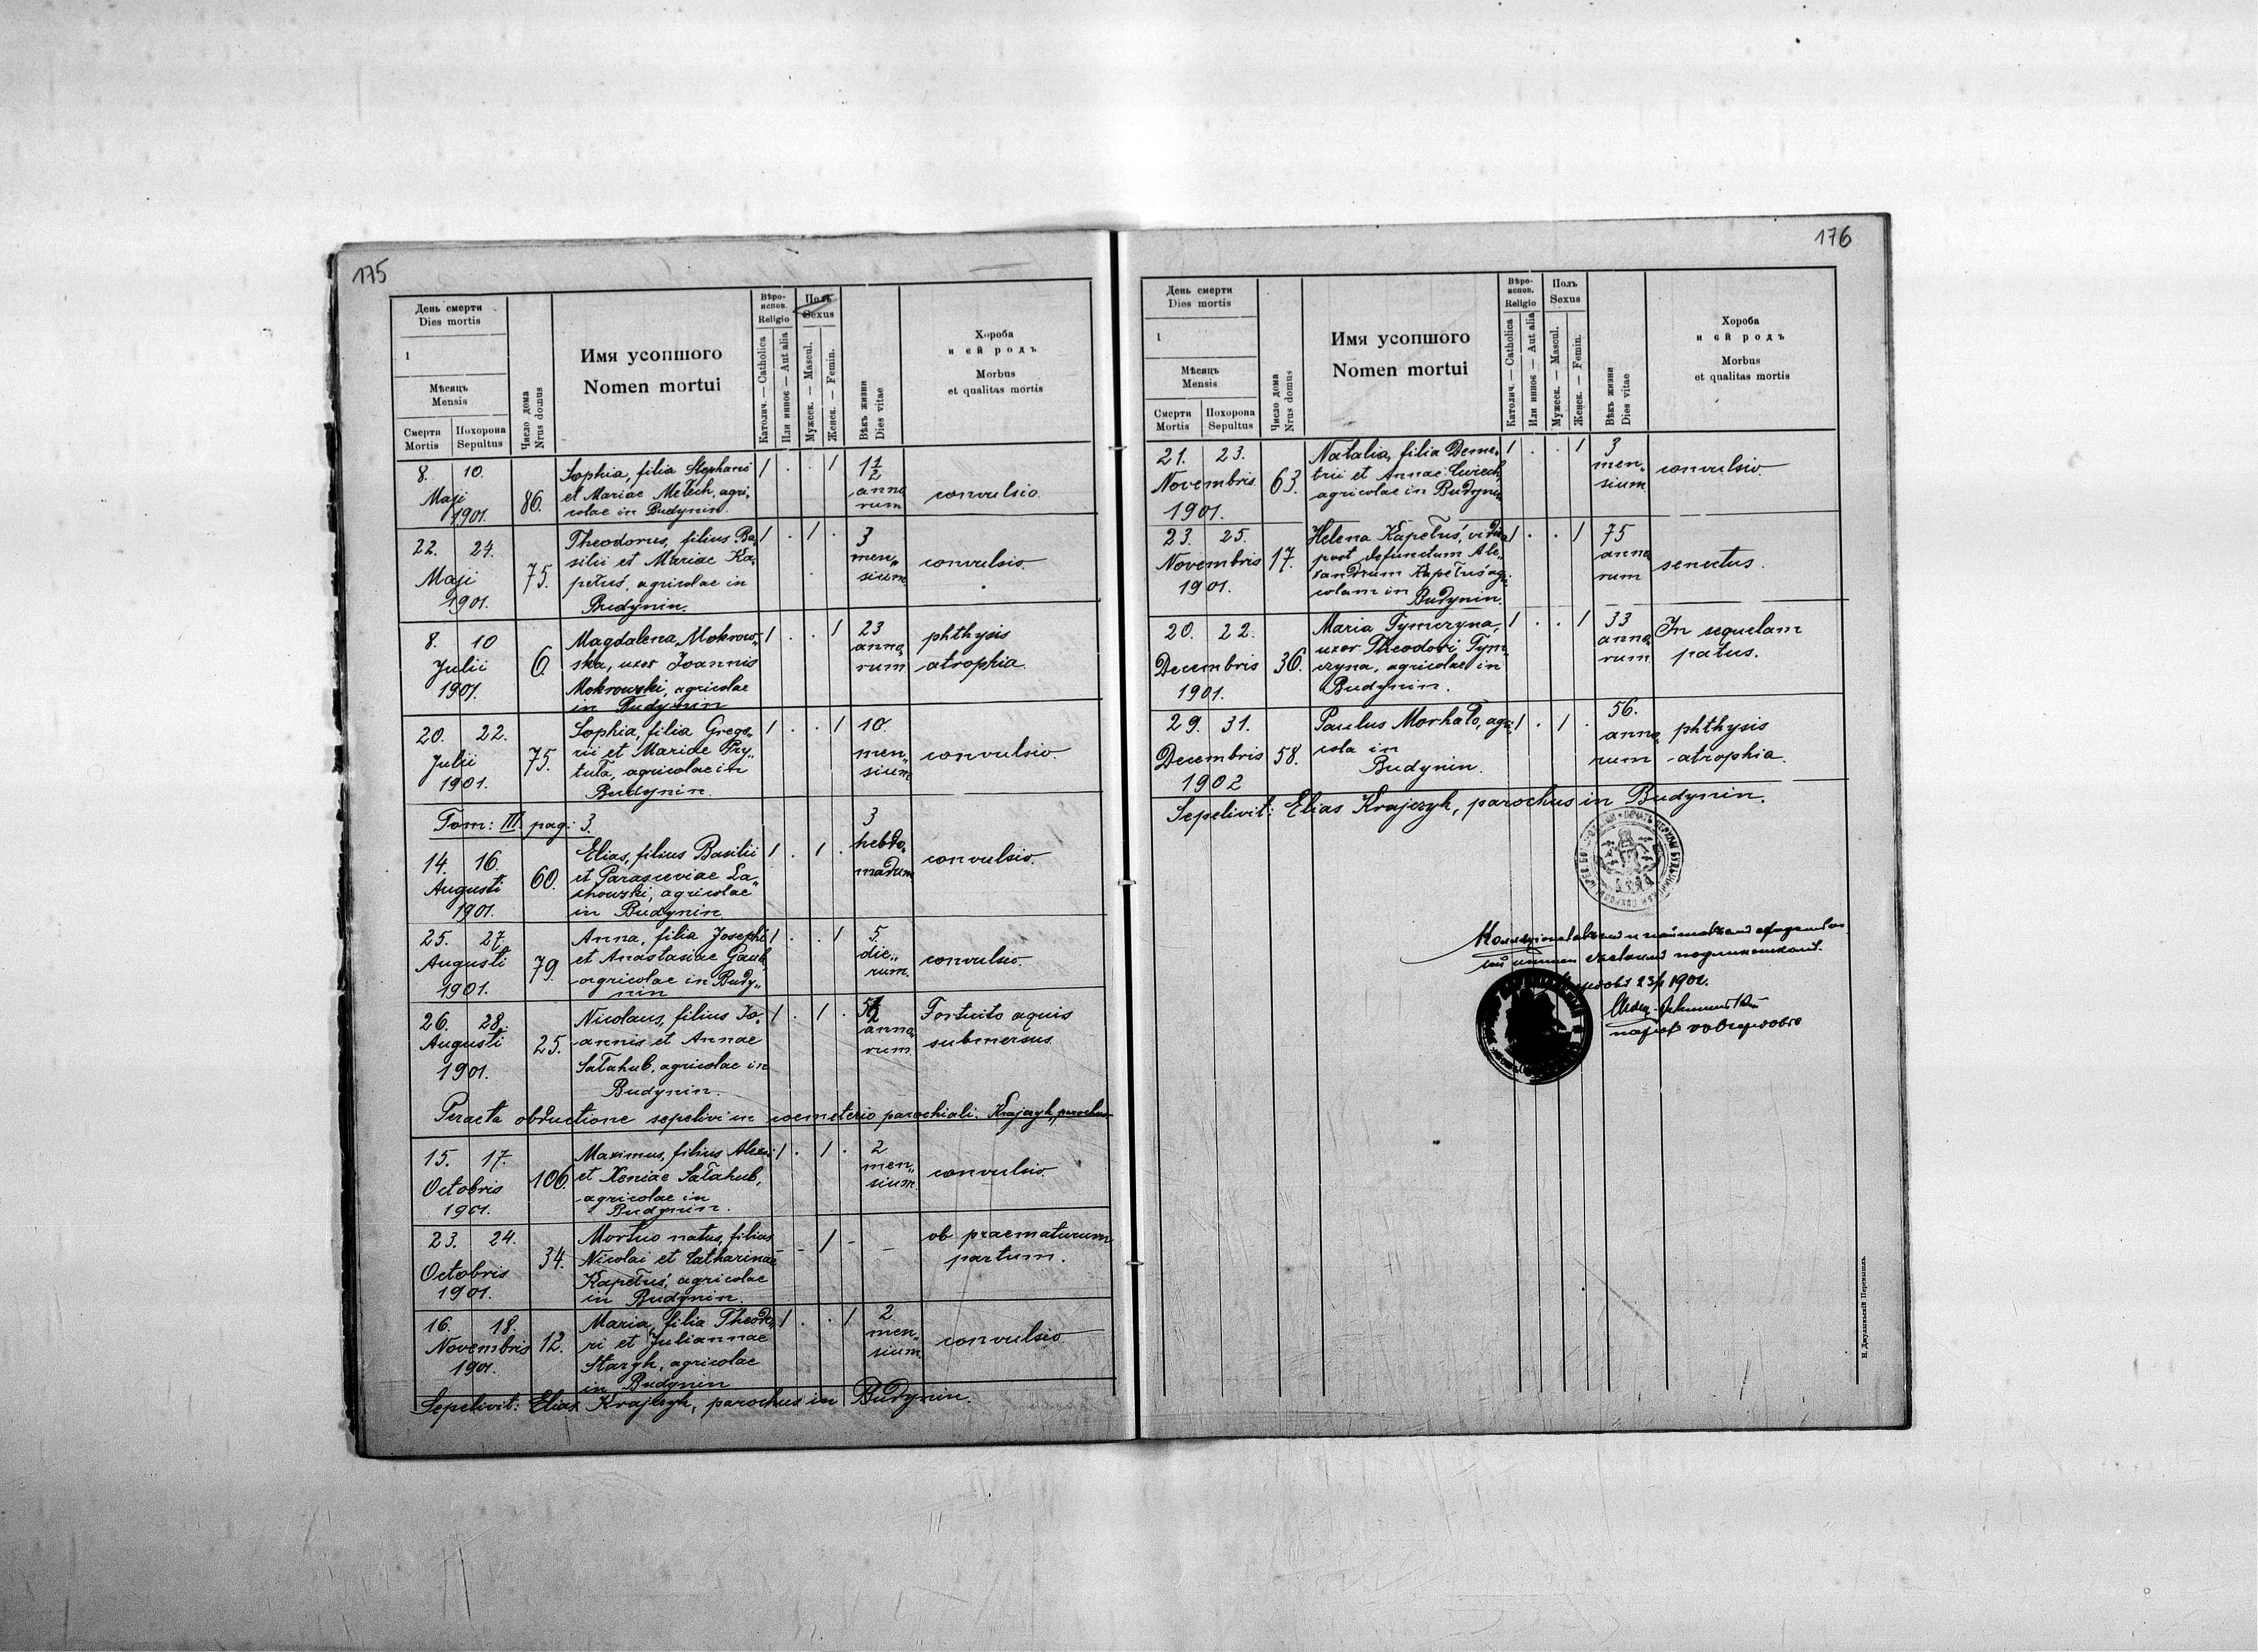 175
День смерти
Dies mortis
1
Мѣсяць
Mensis
Смерти
Mortis
Похорона
Sepultus
Число дома
Nrus domus
Имя усопшого
Nomen mortui
Вѣро-
испов.
Religio
Католич. — Catholica
Или инноє — Aut alia
Полъ
Sexus
Мужеск. — Mascul.
Женск. — Femin.
Вѣкъ жизни
Dies vitae
Хороба
и єй родъ
Morbus
et qualitas mortis
8. 10.
Maji
1901.
86.
Sophia, filia Stephani
et Mariae Melech, agri„
colae in Budynin.
1 . . 1
1 1/2
anno„
rum
convulsio.
22. 24.
Maji
1901.
75.
Theodorus, filius Ba„
silii et Mariae Ka„
petuś, agricolae in
Budynin.
1 . 1 .
3
men„
sium
convulsio.
8. 10
Julii
1901.
6.
Magdalena Mokrow„
ska, uxor Joannis
Mokrowski, agricolae
in Budynin
1 . . 1
23
anno„
rum
phthysis
atrophia.
20. 22.
Julii
1901.
75.
Sophia, filia Grego„
rii et Mariae Pry„
tuła, agricolae in
Budynin.
1 . . 1
10.
men„
sium
convulsio.
Tom: III. pag: 3.
14. 16.
Augusti
1901.
60.
Elias, filius Basilii
et Parasceviae La„
chowski, agricolae
in Budynin.
1 . 1 .
3
hebdo„
madum
convulsio.
25. 27.
Augusti
1901.
79.
Anna, filia Josephi
et Anastasiae
agricolae in Budy„
nin
1 . . 1
5.
die„
rum.
convulsio.
26. 28.
Augusti
1901.
25.
Nicolaus, filius Jo„
annis et Annae
Sałahub, agricolae in
Budynin.
1 . 1 .
anno„
rum
Fortuito aquis
submersus
Peracta obductione sepelivi in coemeterio parochiali. Krajczyk, parochus
15. 17.
Octobris
1901.
106.
Maximus, filius Alexii
et Xeniae Sałahub,
agricolae in
Budynin.
1 . 1 .
2
men„
sium.
convulsio.
23. 24.
Octobris
1901.
34.
Mortuo natus, filius
Nicolai et Catharinae
Kapetuś, agricolae
in Budynin.
- 1 - -
ob praematurum
partum.
16. 18.
Novembris
1901.
12.
Maria, filia Theodo„
ri et Juliannae
Staryk, agricolae
in Budynin
1 . . 1
2
men„
sium
convulsio
Sepelivit: Elias Krajczyk, parochus in Budynin.
176
День смерти
Dies mortis
1
Мѣсяць
Mensis
Смерти
Mortis
Похорона
Sepultus
Число дома
Nrus domus
Имя усопшого
Nomen mortui
Вѣро-
испов.
Religio
Католич. — Catholica
Или инноє — Aut alia
Полъ
Sexus
Мужеск. — Mascul.
Женск. — Femin.
Вѣкъ жизни
Dies vitae
Хороба
и єй родъ
Morbus
et qualitas mortis
21. 23.
Novembris
1901.
63.
Natalia, filia Deme„
trii et Annae
agricolae in Budynin
1 . . 1
3
men„
sium
convulsio
23. 25.
Novembris
1901.
17.
Helena Kapetuś, vidua
post defunctum Ale„
xandrum Kapetuś agri„
colam in Budynin.
1 . . 1
75
anno„
rum
senectus.
20. 22.
Decembris
1901.
36.
Maria Tymczyna,
uxor Theodori Tym„
czyna, agricolae in
Budynin.
1 . . 1
33
anno„
rum
In sequelam
patus.
29. 31.
Decembris
1902
58.
Paulus Morhało, agri„
cola in
Budynin.
1 . 1 .
56.
anno„
rum
phthysis
atrophia.
Sepelivit: Elias Krajczyk, parochus in Budynin.
1902.
Н. Джулиньскій Перемышль.